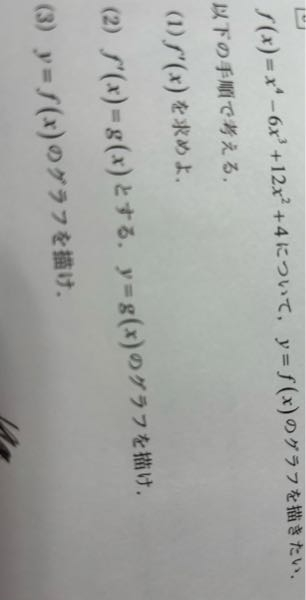 f(x)=x⁴−6x³+12x²+4について，y=f(x)のグラフを描きたい．
以下の手順で考える．
(1) f′(x)を求めよ．
(2) f′(x)=g(x)とする．y=g(x)のグラフを描け．
(3) y=f(x)のグラフを描け．